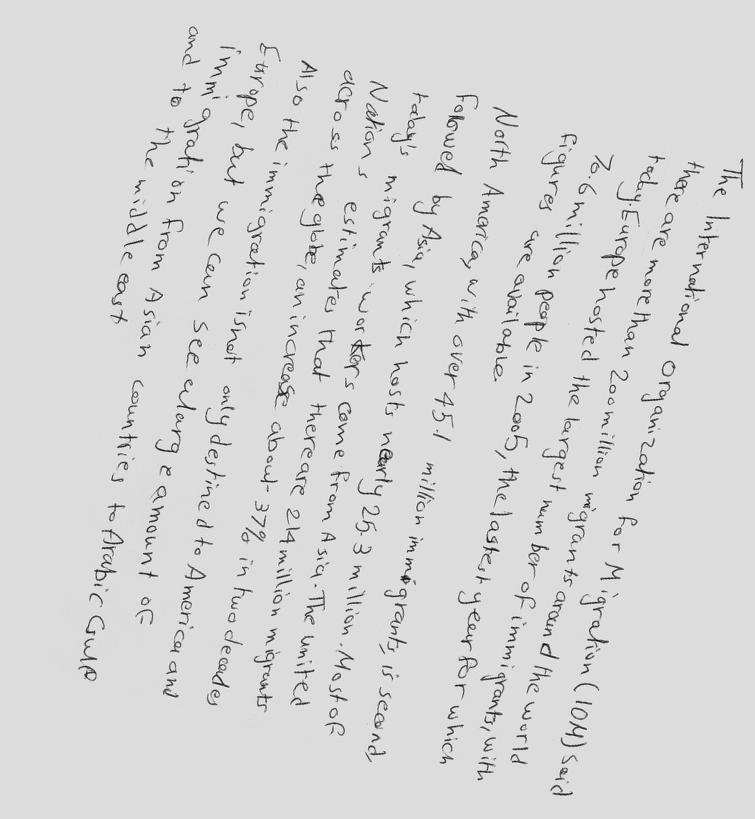 The International Organization for Migration (IOM) said
there are more than 200 million migrants around the world
today Europe hosted the largest number of immigrants, with
70.6 million people in 2005, the lastest year for which
figures are available.
North America, with over 45.1 million immigrants, is second,
followed by Asia, which hosts nearly 25.3 million. Most of
today's migrants workers come from Asia. The united
Nations estimates that there are 214 million migrants
across the globe, an increase about 37% in two decades
Also the immigration isnot only destined to America and
Europe, but we can see a large amount of
immigration from Asian countries to Arabic Gulf
and to the middle east